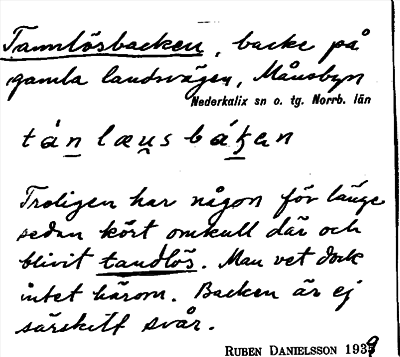 Tannlösbacken, backe på
gamla landsvägen, Månsbyn
Nederkalix sn o. tg. Norrb. län
tán læu̯s bák̮an
Troligen har någon för länge
sedan kört omkull där och
blivit tandlös. Man vet dock
intet härom. Backen är ej
särskilt svår.
RUBEN DANIELSSON 1939